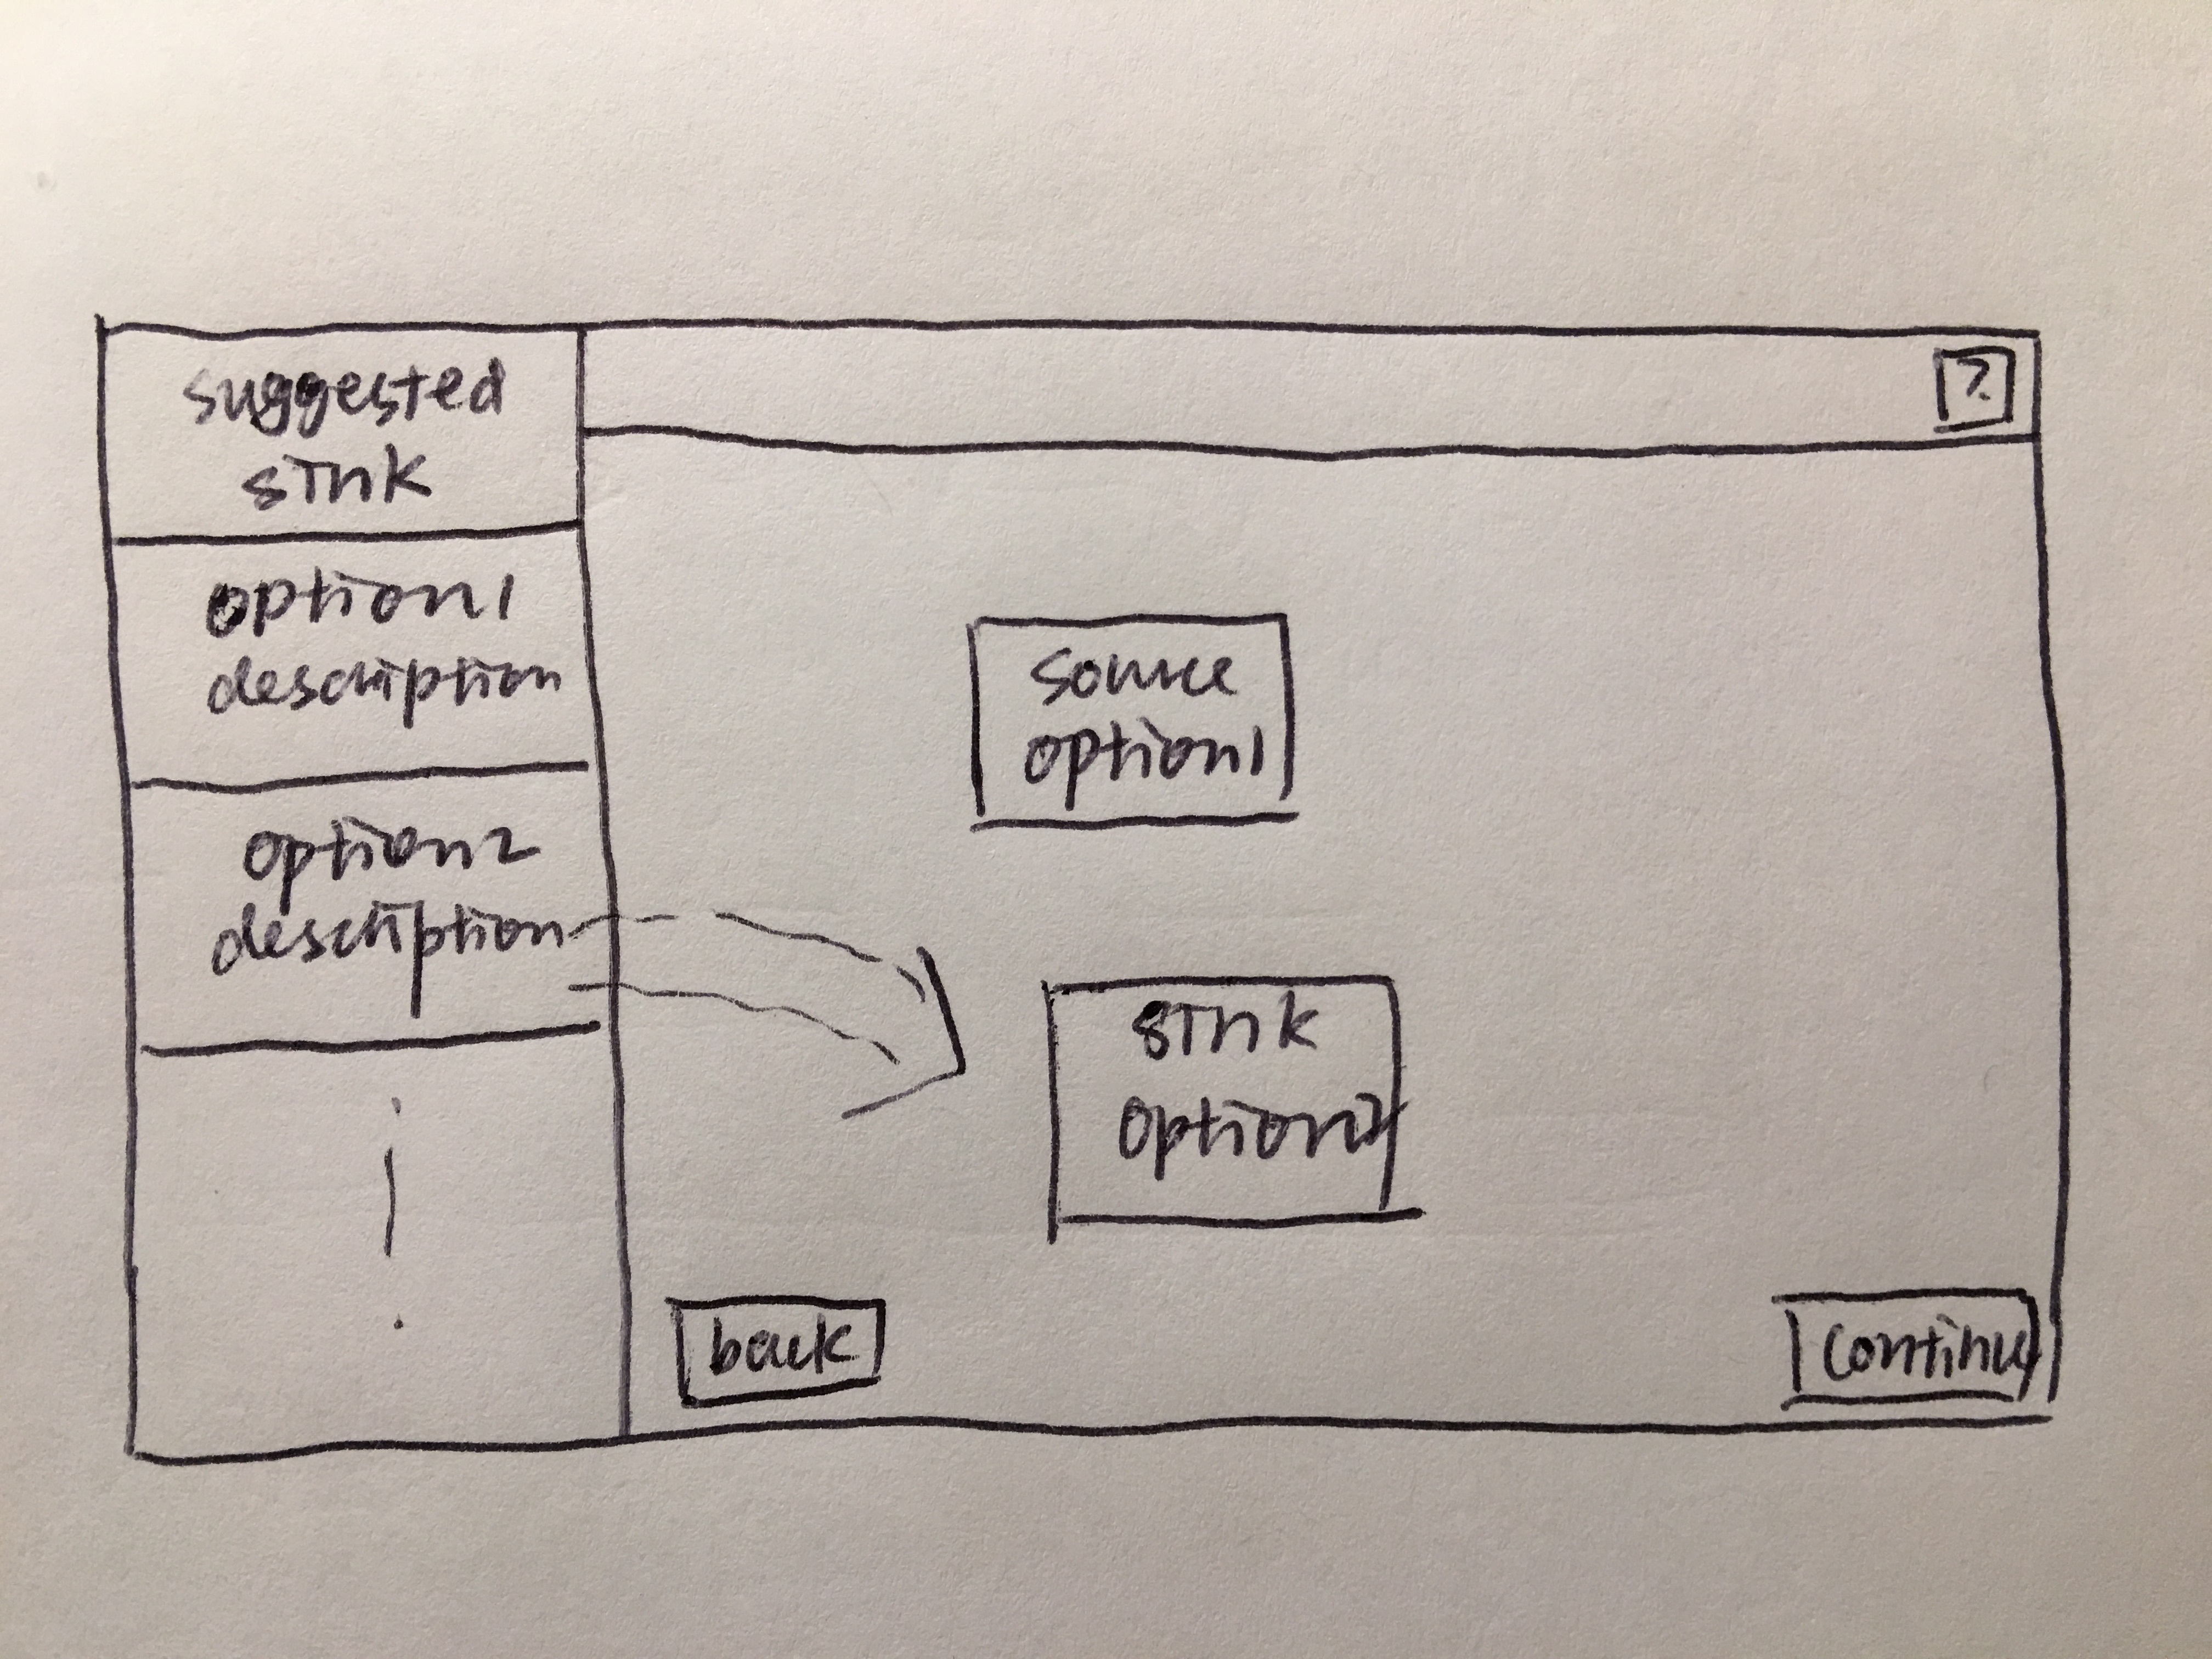 suggested
sink
?
option1
description
option2
description
source
option1
sink
option2
back
continue